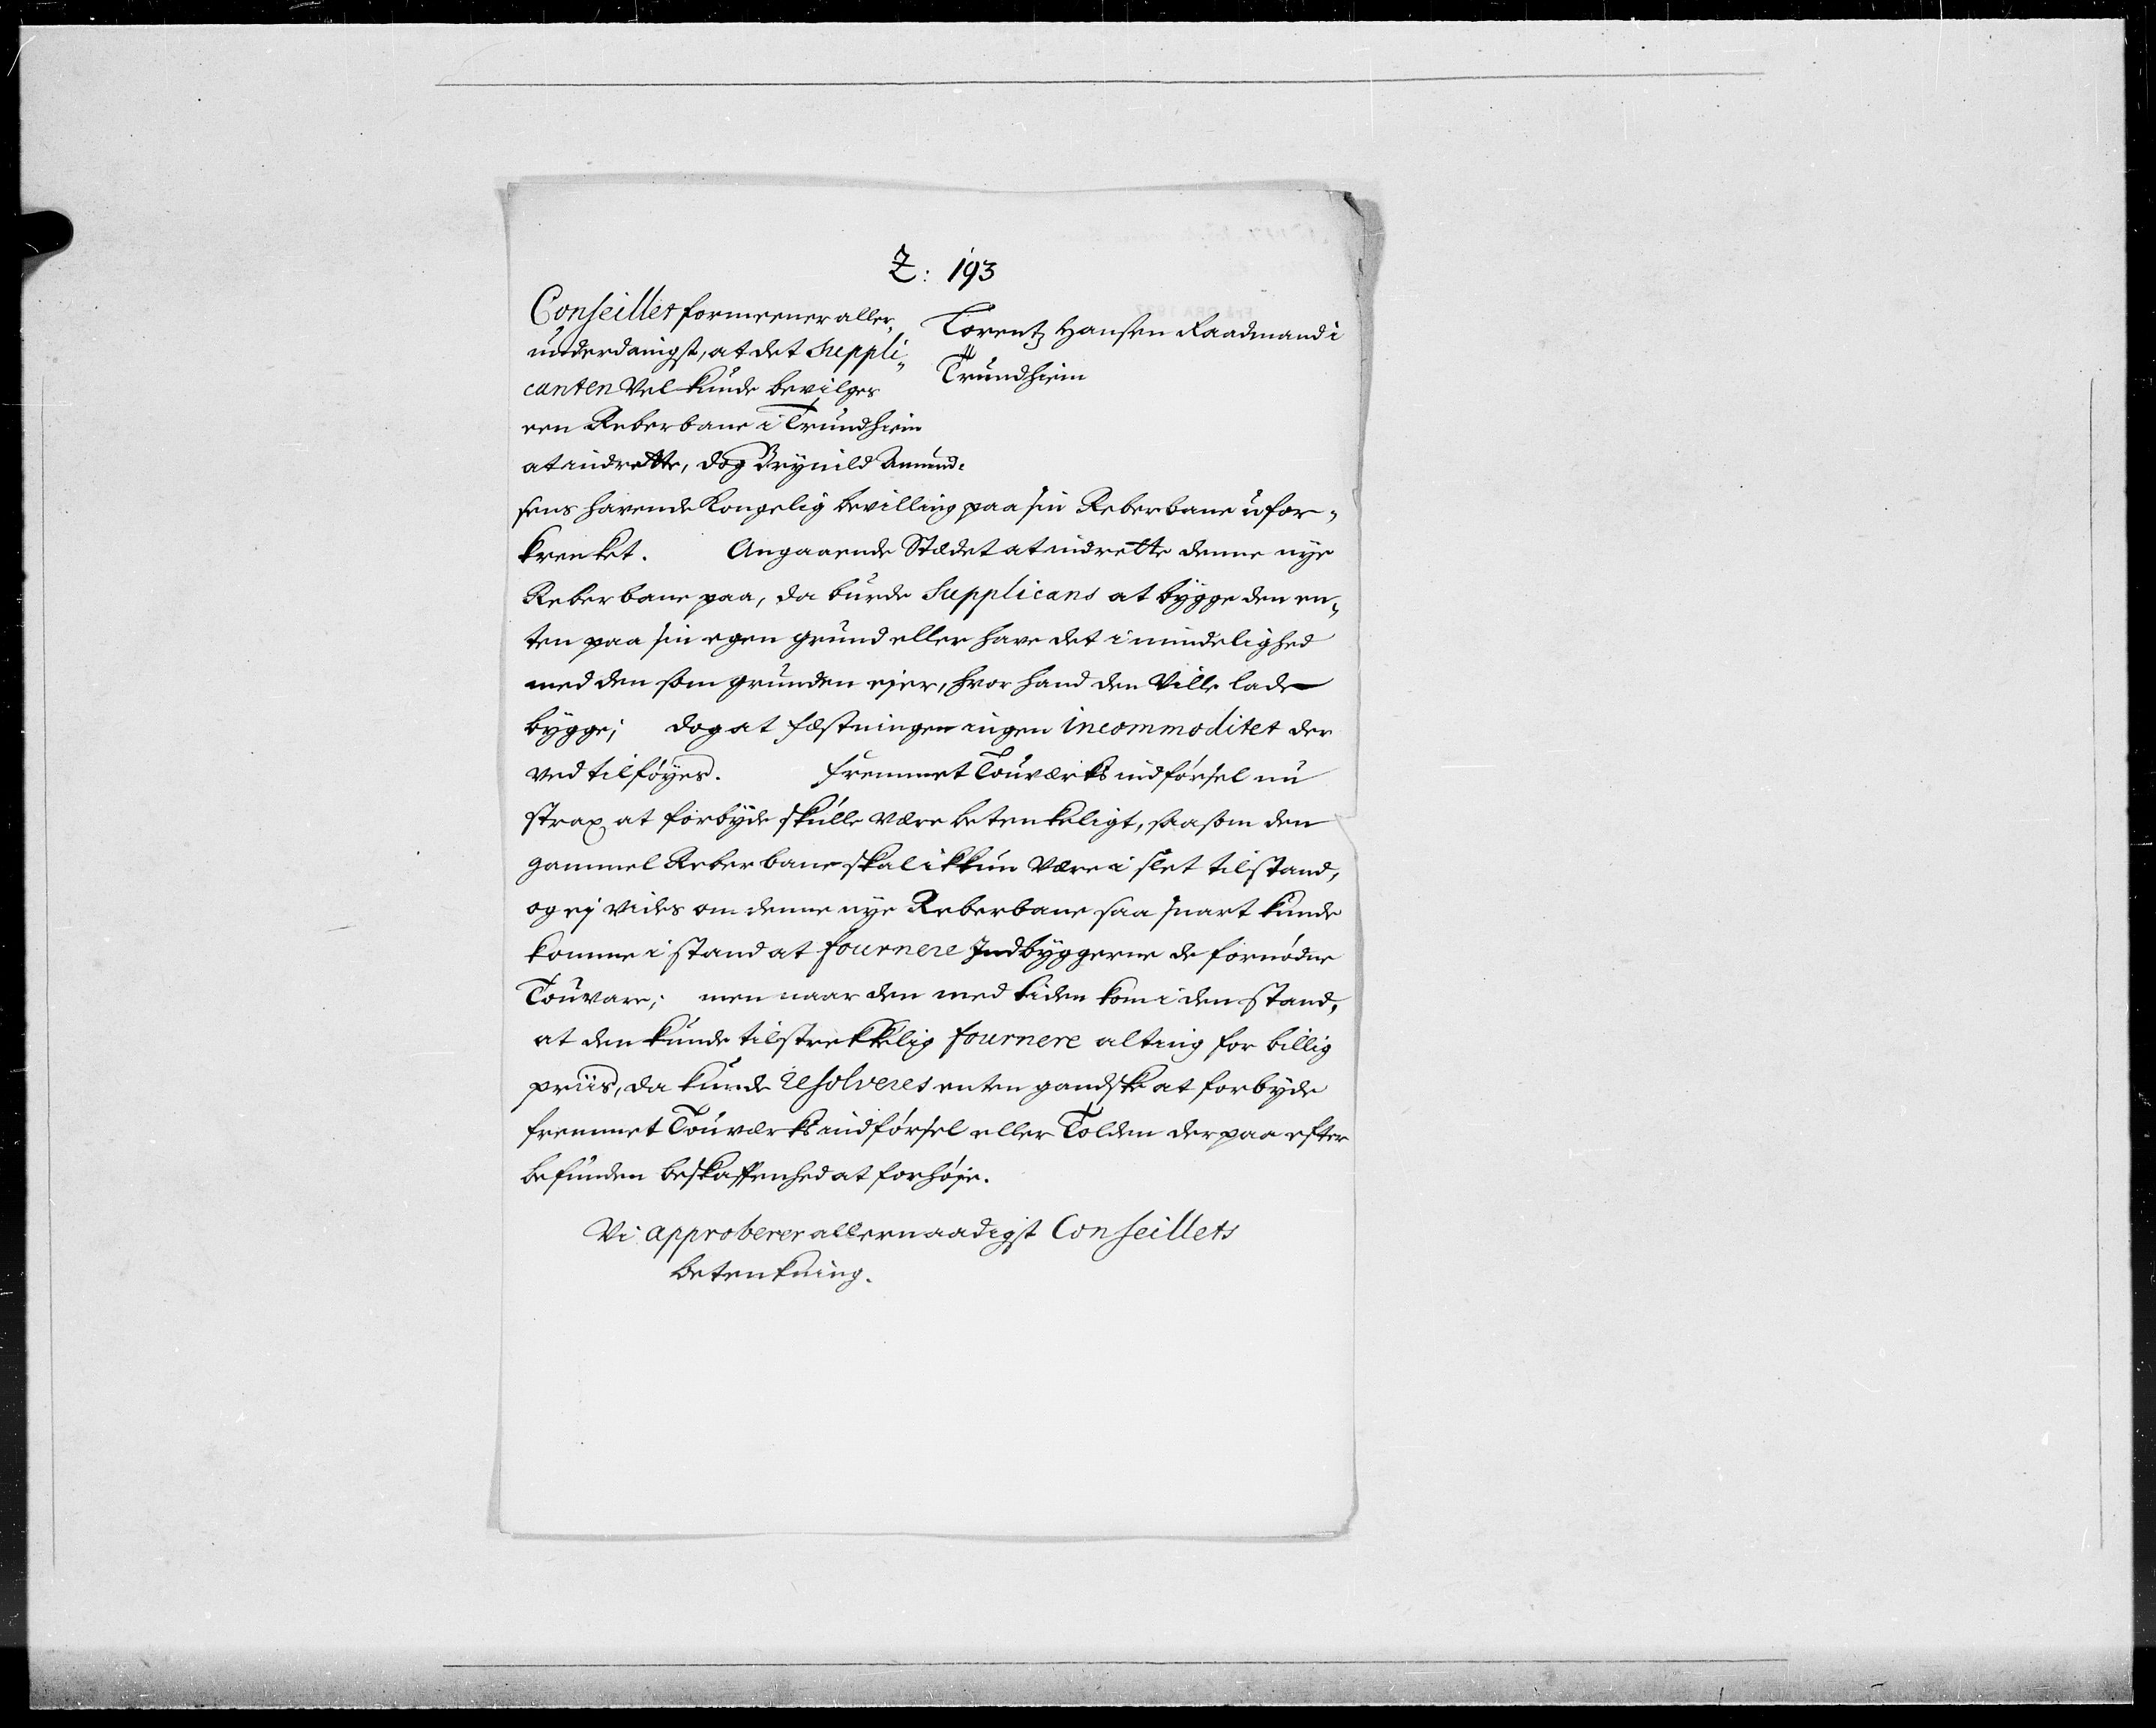 Z: 193
Conseillet formeener aller-
underdanigst, at det Suppli-
canten Vel kunde bevilges
een Reberbane i Trundhiem
at indrette, dog Brynild Amund-
sens havende Kongelig bevilling paa sin Reberbane ufor-
krenket. Angaaende Stædet at indrette denne nye
Reberbane paa, da burde Supplicans at bygge den en-
ten paa sin egen grund eller have det i mindelighed
med den som grunden ejer, hvor hand den Ville lade
bygge; dog at fæstningen ingen incommoditet der
ved tilføyes. fremmet Touværks indførsel nu
strax at forbyde skulle være betenkeligt, saasom den
gammel Reberbane skal ikkun Være i slet tilstand,
og ej vides om denne nye Reberbane saa snart kunde
komme i stand at fournere Indbyggerne de fornødne
Touvare; men naar den med tiden kom i den stand,
at den kunde tilstrekkelig fournere alting for billig
priis, da kunde resolveres enten gandske at forbyde
fremmet Touværks indførsel eller Tolden derpaa efter
befunden beskaffenhed at forhøje.
Vi approberer allernaadigst Conseillets
betenkning.
Lorentz Hansen Raadmand i
Trundhiem